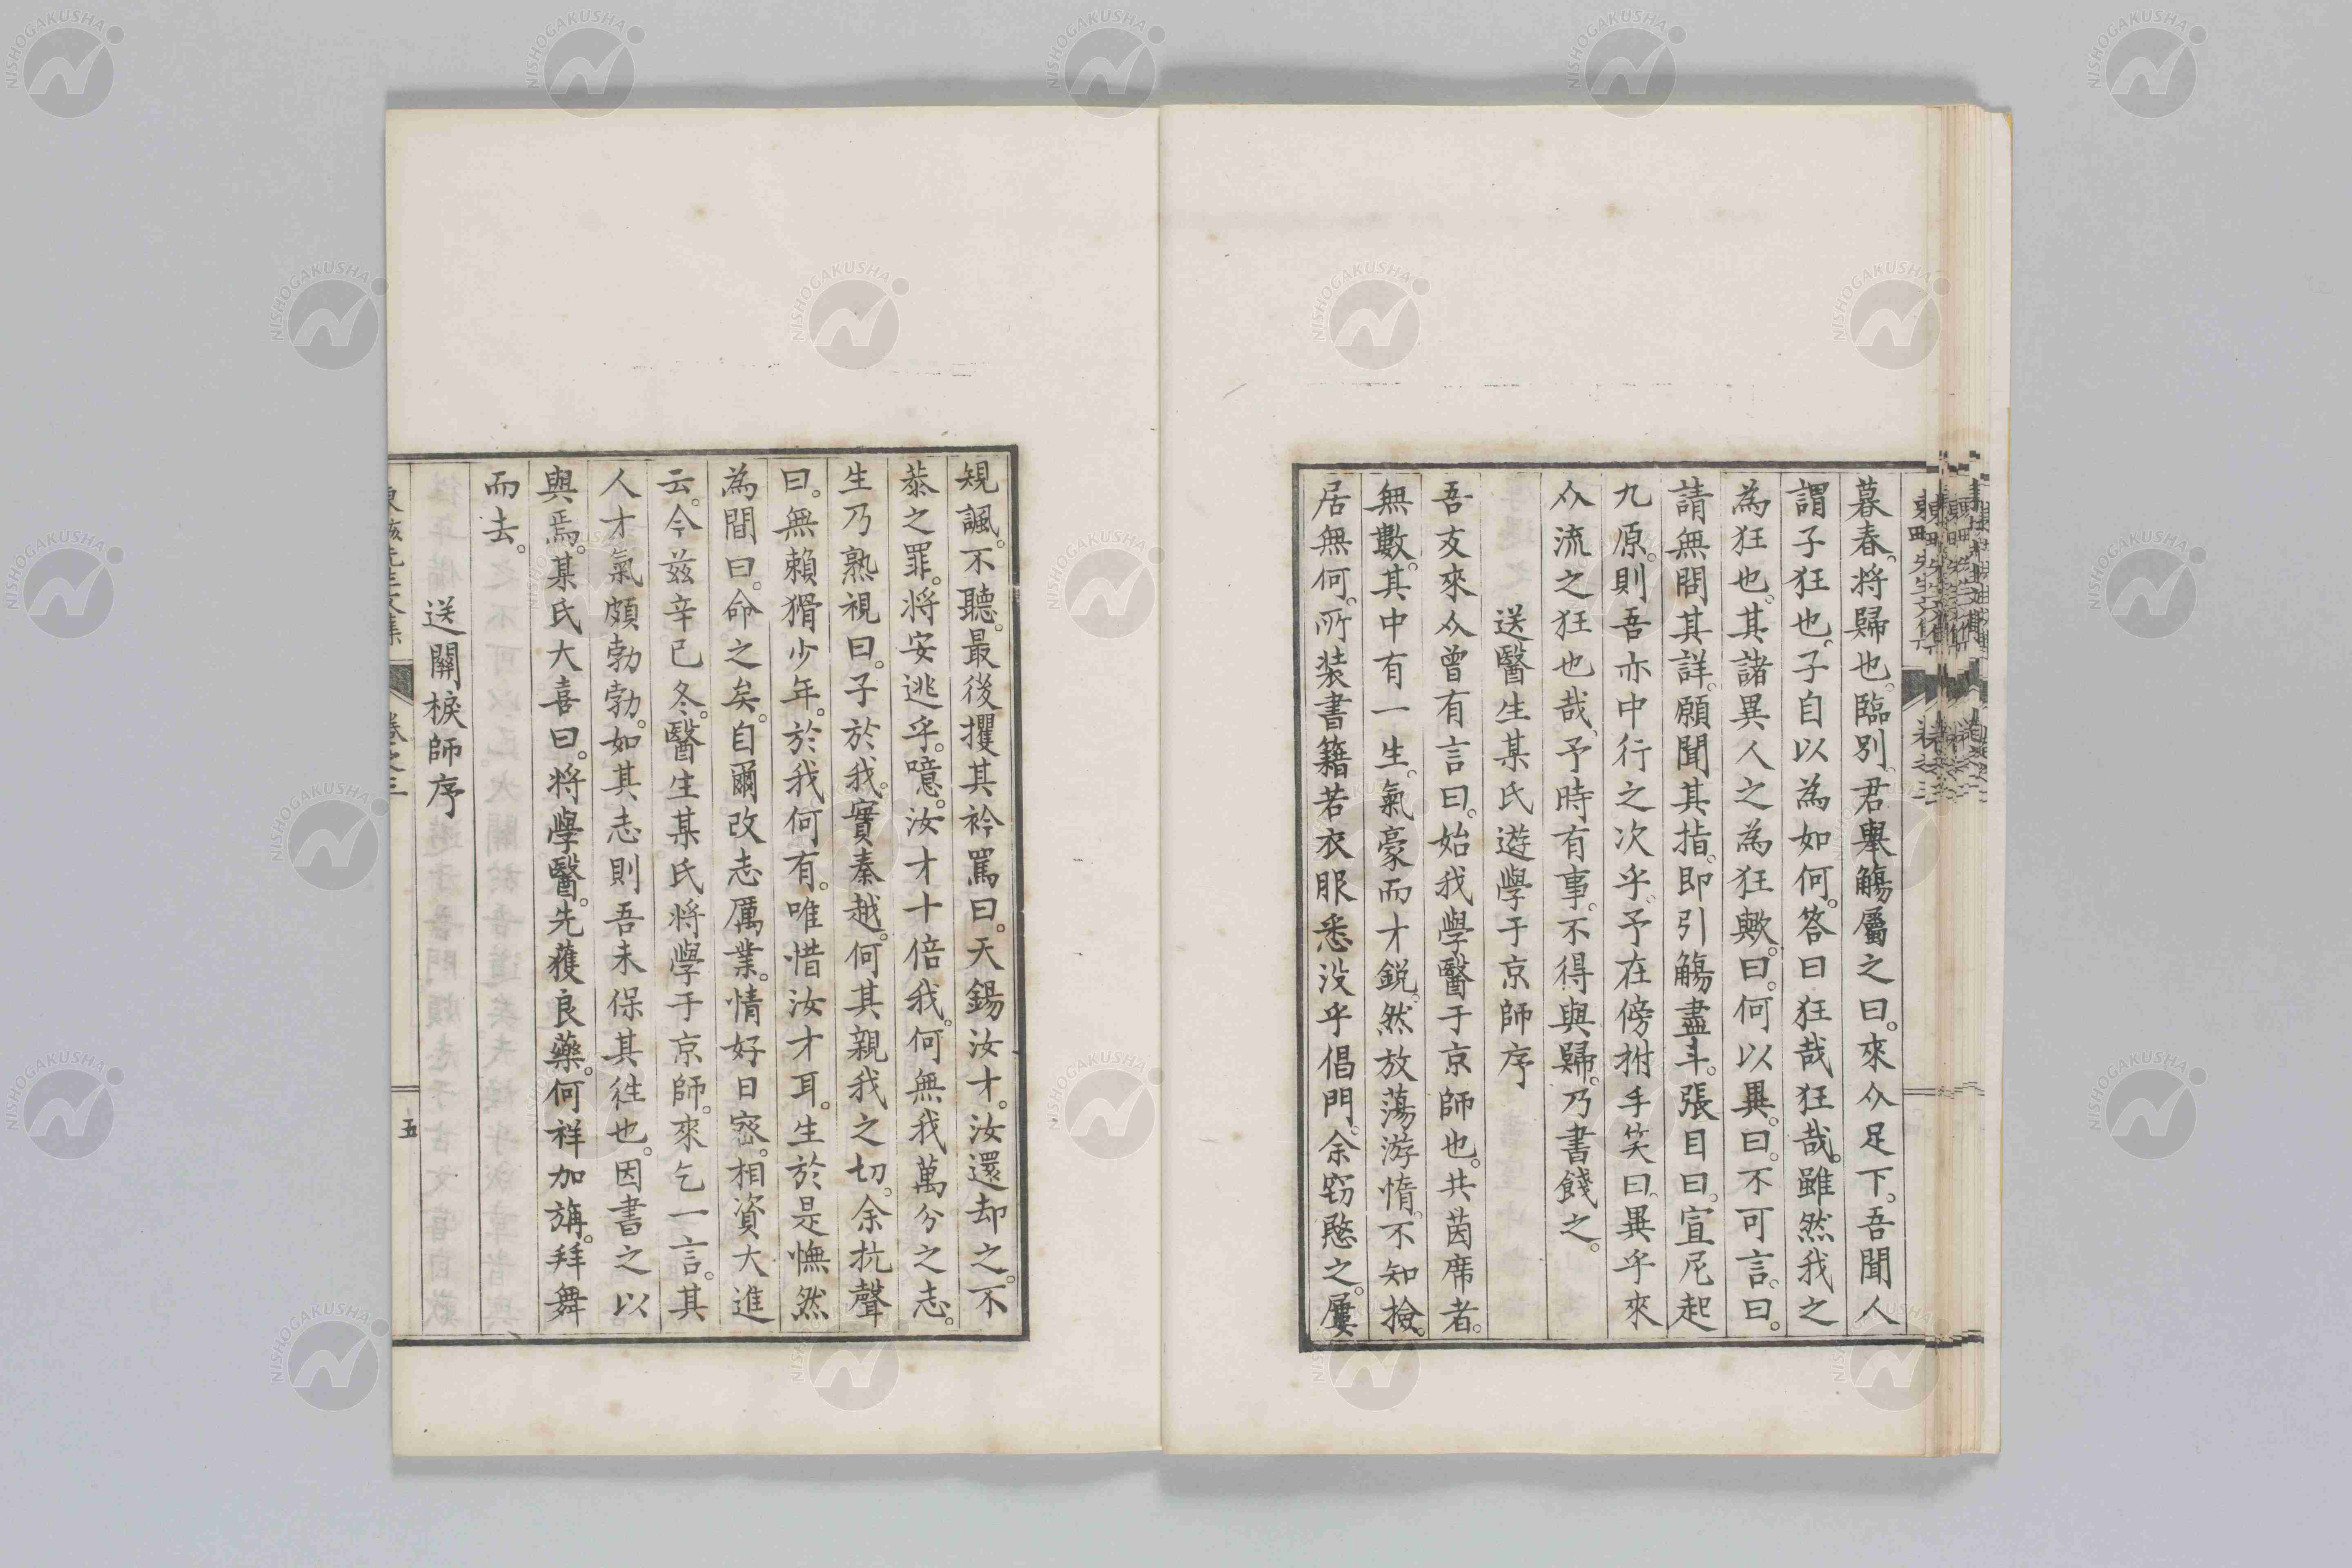 暮春。將歸也。臨別。君舉觴屬之曰。來仌足下。吾聞人
謂子狂也。子自以為如何。答曰狂哉狂哉。雖然我之
為狂也。其諸異人之為狂歟。曰。何以異。曰。不可言。曰。
請無問其詳。願聞其指。即引觴盡斗。張目曰。宣尼起
九原。則吾亦中行之次乎。予在傍拊手笑曰。異乎來
仌流之狂也哉。予時有事。不得與歸。乃書餞之。
送醫生某氏遊學于京師序
吾友來仌曾有言曰。始我學醫于京師也。共茵席者。
無數。其中有一生。氣豪而才銳。然放蕩游惰。不知撿。
居無何。所裝書籍若衣服悉沒乎倡門。余竊愍之。屢
規諷。不聽。最後攫其衿罵曰。天錫汝才。汝還却之。不
恭之罪。將安逃乎。噫。汝才十倍我。何無我萬分之志。
生乃熟視曰。子於我。實秦越。何其親我之切。余抗聲
曰。無賴猾少年。於我何有。唯惜汝才耳。生於是憮然
為間曰。命之矣。自爾改志厲業。情好日密。相資大進
云。今茲辛已冬。醫生某氏將學于京師。來乞一言。其
人才氣頗勃勃。如其志則吾未保其往也。因書之以
與焉。某氏大喜曰。將學醫。先獲良藥。何祥加旃。拜舞
而去。
送關棙師序
卷之三
五
NISHOGAKUSHA